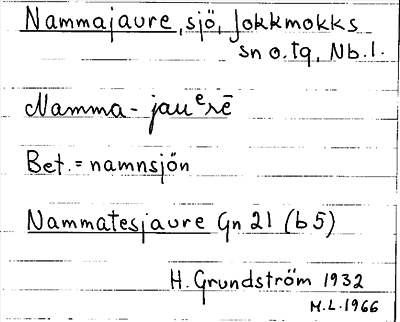 Nammajaure, sjö, Jokkmokks
sn o. tg, Nb. l.
Namma-jauᵉrē
Bet. = namnsjön
Nammatesjaure Gn 21 (b 5)
H. Grundström 1932
M.L. 1966